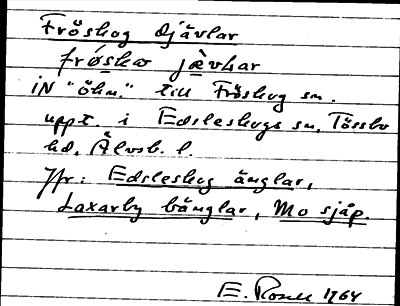 Fröskog djävlar
frǿskω jævʟar
iN "öknr." till Fröskog sn.
uppt. i Edsleskogs sn, Tössbo
hd, Älvsb. l.
Jfr: Edsleskog änglar,
Laxarby bänglar, Mo sjåp.
E. Rosell 1964